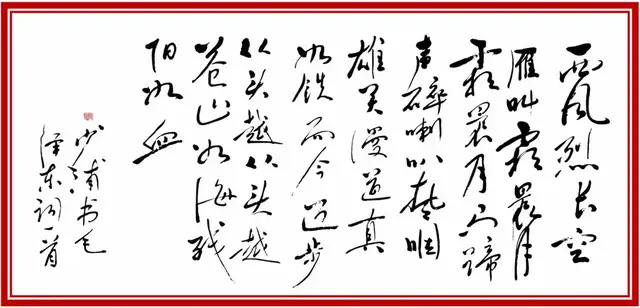 西风烈长空
雁叫霜晨月
霜晨月马蹄
声碎喇叭声咽
雄关漫道真
如铁而今迈步
从头越从头越
苍山如海残
阳如血
少甫书毛
泽东词一首